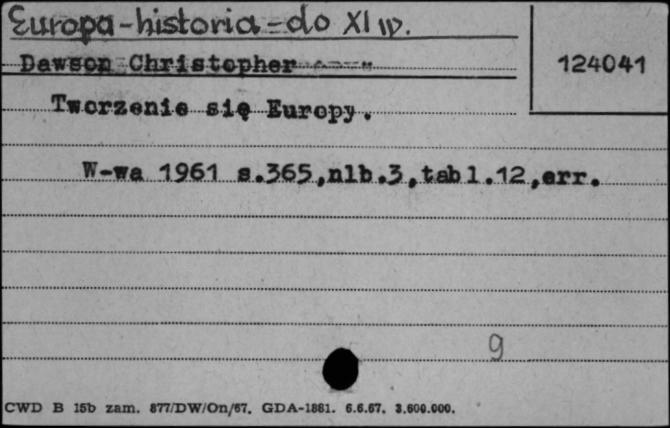 Europa-historia-do XI w.
Dawson Christopher
124041
Tworzenie się Europy.
W-wa 1961 s.365,nlb.3,tabl.12,err.
9
CWD B 15b zam. 877/DW/On/67. GDA-1881. 6.6.67. 3.600.000.